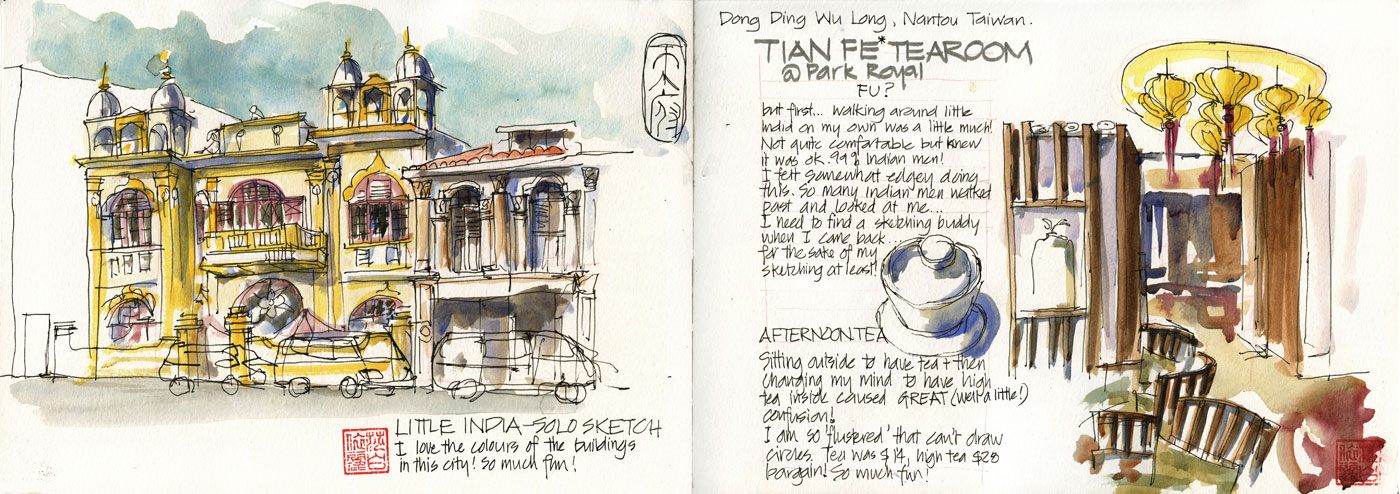 天府
LITTLE INDIA-SOLO SKETCH
I love the colours of the buildings
in this city! So much fun!
Dong Ding Wu Long, Nantou Taiwan.
TIAN FE* TEAROOM
@ Park Royal
FU?
but first... walking around little
India on my own was a little much!
Not quite comfortable but knew
it was ok. 99% Indian men!
I felt somewhat edgey doing
this. So many Indian men walked
past and looked at me...
I need to find a sketching buddy
when I came back...
for the sake of my
sketching at least!
AFTERNOON TEA
Sitting outside to have tea + then
changing my mind to have high
tea inside caused GREAT (well a little!)
confusion!
I am so 'flustered' that can't draw
circles. Tea was $14, high tea $28
bargain! So much fun!